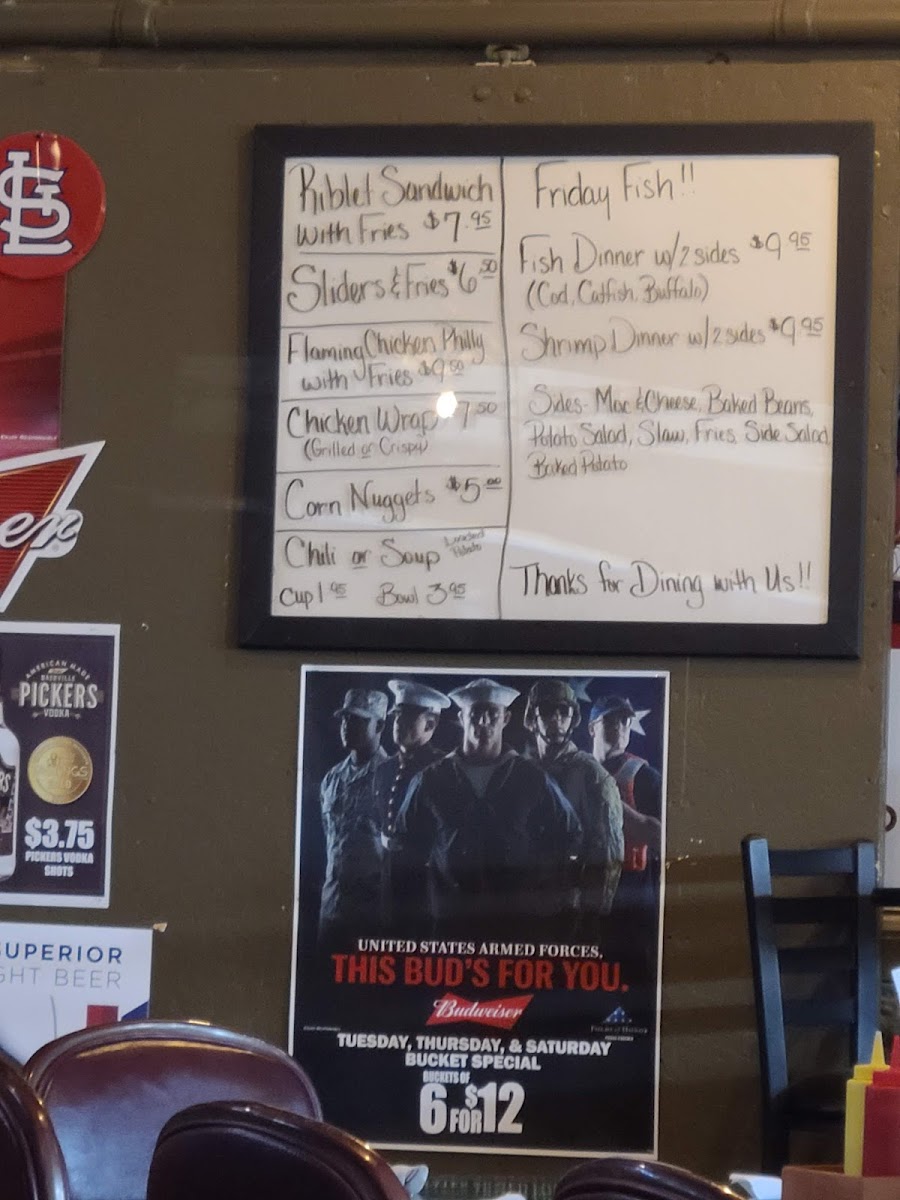 Riblet Sandwich
with Fries $7.95
Sliders & Fries $6.50
Flaming Chicken Philly
with Fries $9.50
Chicken Wrap $7.50
(Grilled or Crispy)
Corn Nuggets $5.00
Chili or Soup Loaded
Potato
Cup 1.95 Bowl 3.95
Friday Fish!!
Fish Dinner w/2 sides $9.95
(Cod, Catfish, Buffalo)
Shrimp Dinner w/2 sides $9.95
Sides- Mac & Cheese, Baked Beans,
Potato Salad, Slaw, Fries, Side Salad
Baked Potato
Thanks for Dining with Us!!
STL
en
AMERICAN MADE
NASHVILLE
PICKERS
VODKA
$3.75
PICKERS VODKA
SHOTS
SUPERIOR
GHT BEER
UNITED STATES ARMED FORCES,
THIS BUD'S FOR YOU.
Budweiser
TUESDAY, THURSDAY, & SATURDAY
BUCKET SPECIAL
BUCKETS OF
6 FOR $12